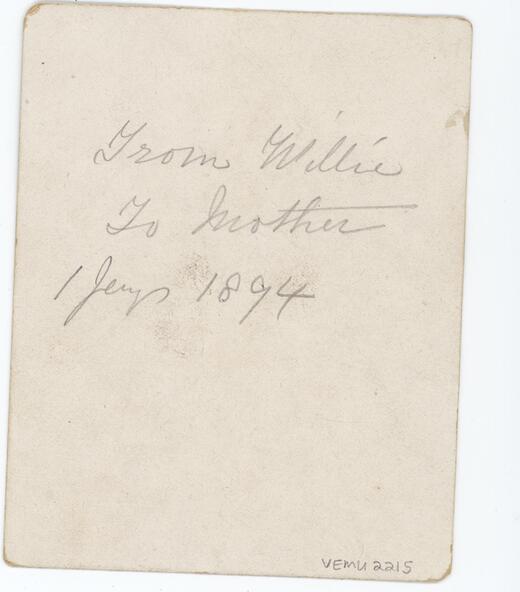 From Willie
To Mother
1 1894
VEMU 2215